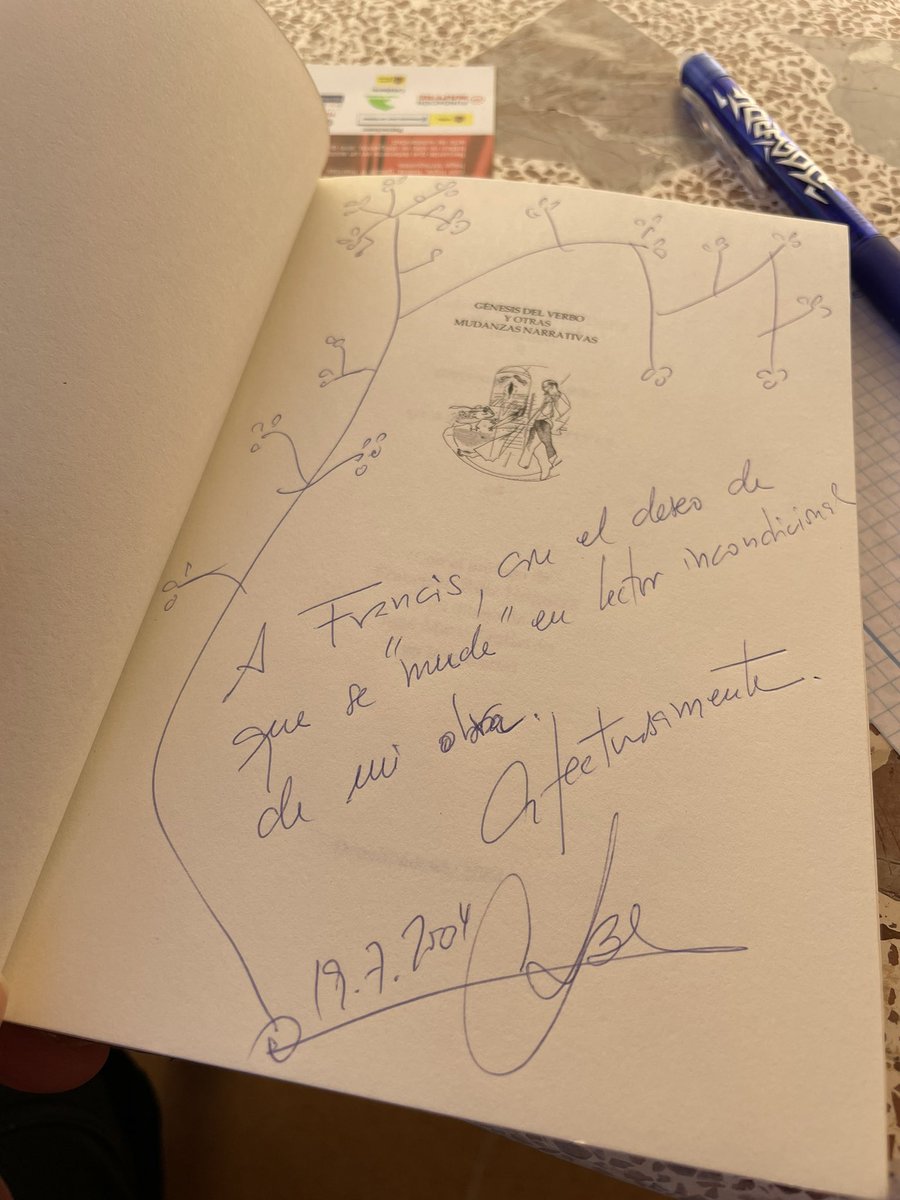 GÉNESIS DEL VERBO
Y OTRAS
MUDANZAS NARRATIVAS
A Francis, con el deseo de
que se "mude" en lector incondicional
de mi obra.
Afectuosamente.
19.7.2004